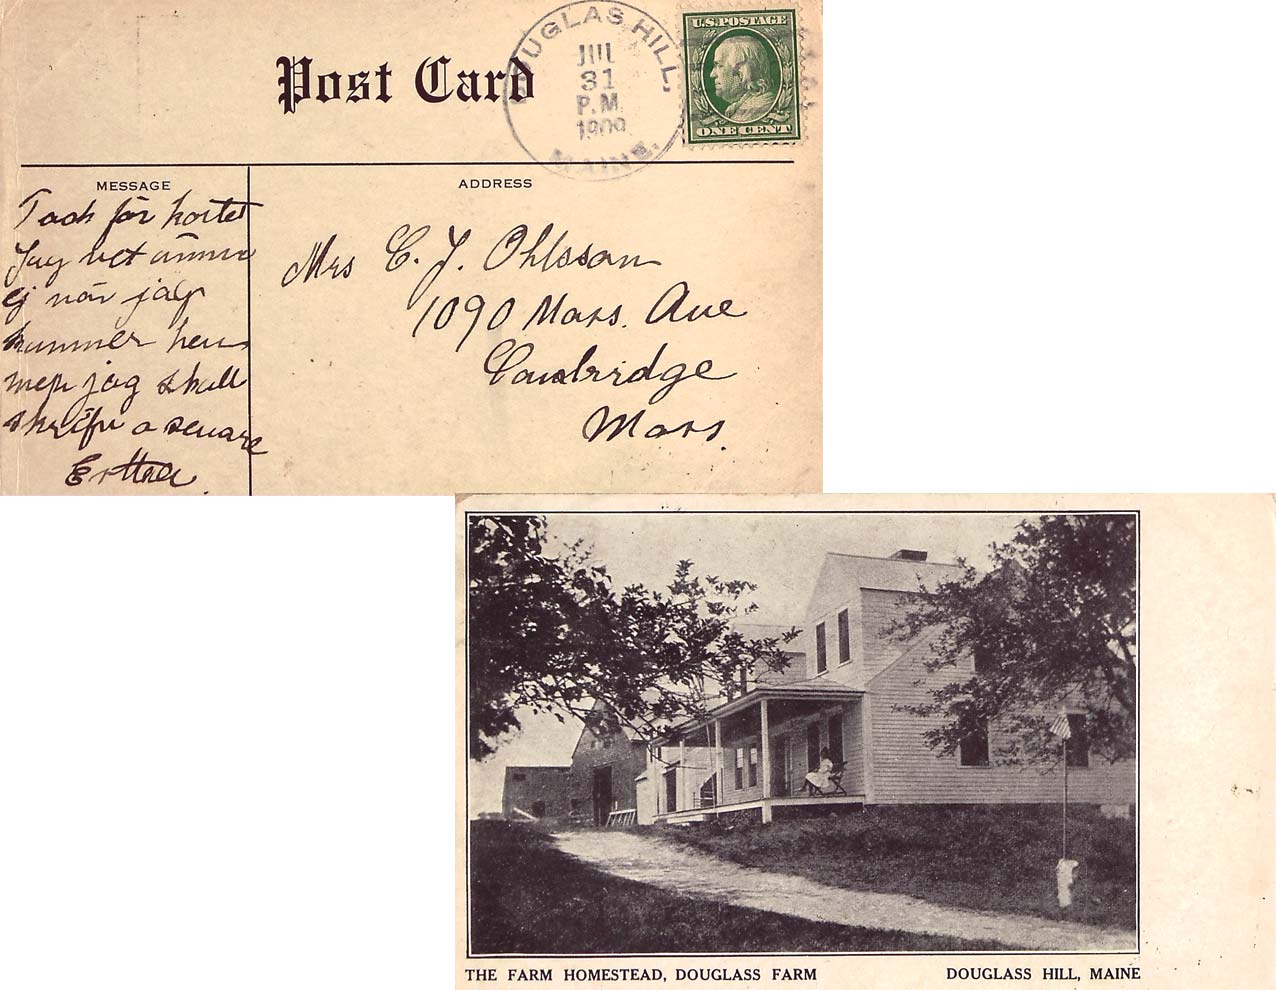 Post Card
DOUGLAS HILL,
JUL
31
P.M.
1909
MAINE.
U.S. POSTAGE
ONE CENT
MESSAGE
ADDRESS
Tack för kortet
Jag vet ännu
ej när jag
kummer hem
men jag skall
skrifva senare
Mrs C. J. Ohlsson
1090 Mass. Ave
Cambridge
Mass.
THE FARM HOMESTEAD, DOUGLASS FARM
DOUGLASS HILL, MAINE